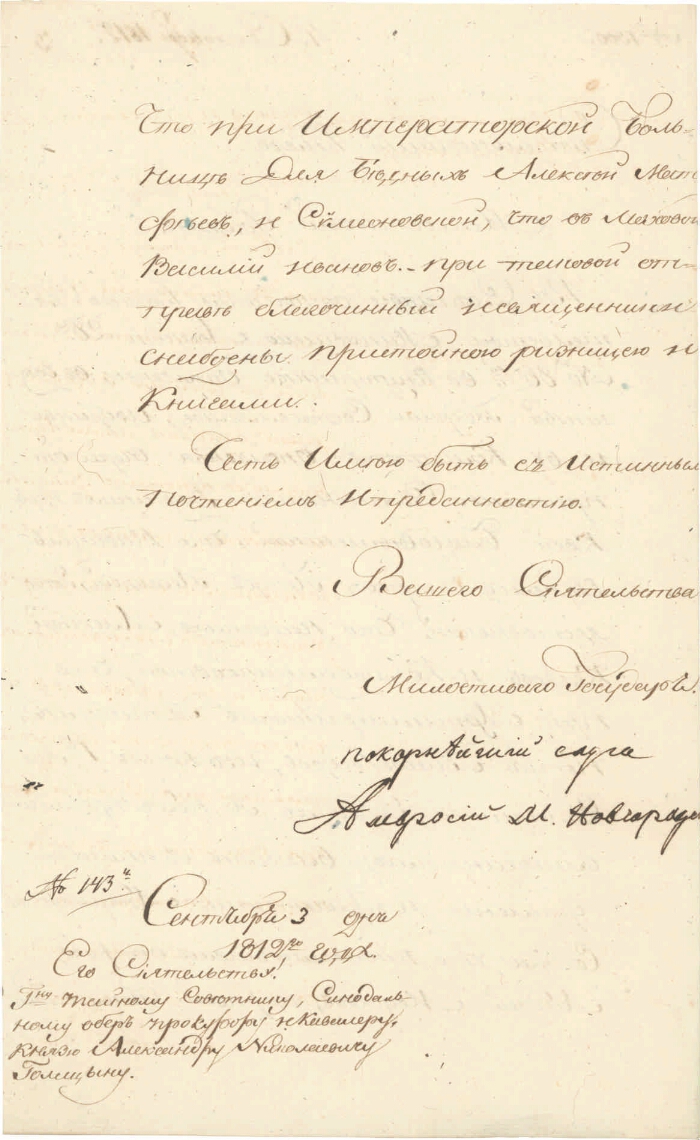 Что при Императорской Боль-
ницѣ Для Бѣдныхъ Алексѣй Мат
фѣевъ, и Сѵмеоновской, что въ Моховой
Василий Ивановъ. при таковой от-
правѣ благочинный и священники
снабдены пристойною ризницею и
Книгами.
Честь Имѣю быть съ Истинным
Почтеніемъ И преданностію.
Вашего Сіятельства
Милостиваго Государя.
покорнѣйшій слуга
Амвросій М. Новгородс
№ 143й
Сентября 3 дня
1812го года.
Его Сіятельству
Гну тайному Совѣтнику, Синодаль-
ному оберъ прокурору и Кавалеру,
Князю Александру Николаевичу
Голицыну.